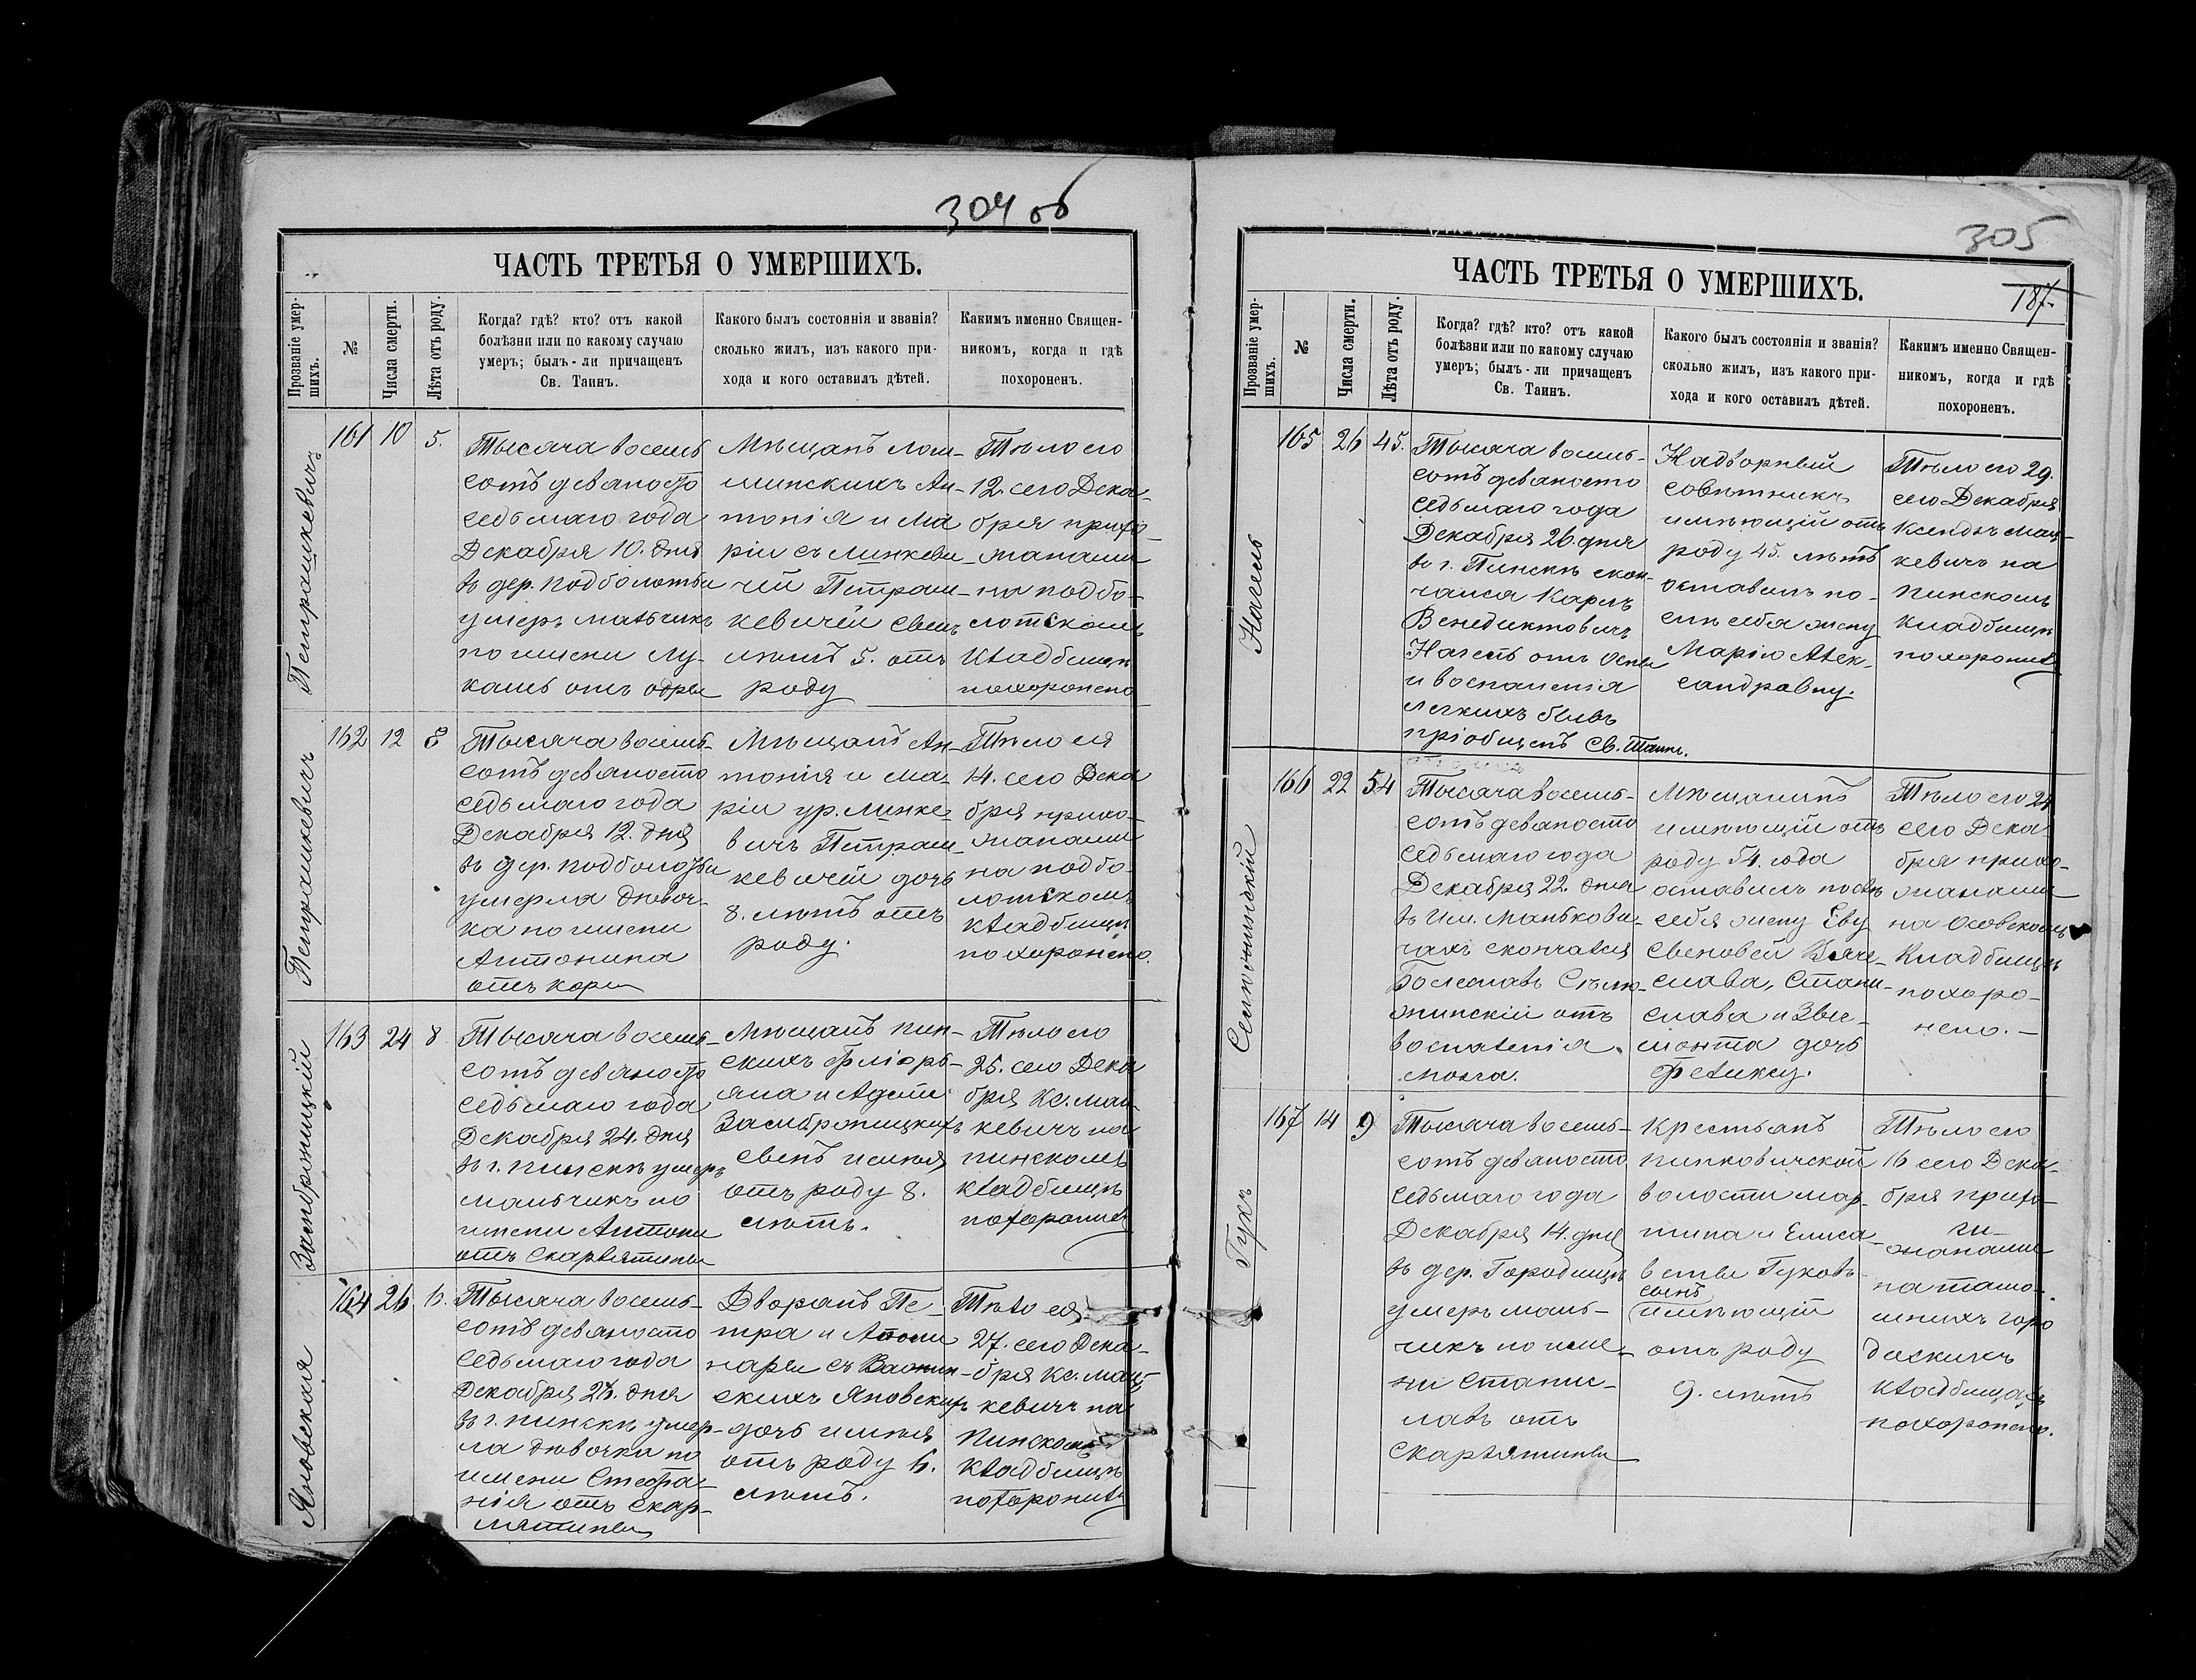 304 об
ЧАСТЬ ТРЕТЬЯ О УМЕРШИХЪ.
Прозваніе умер-
шихъ.
№
Числа смерти.
Лѣта отъ роду.
Когда? гдѣ? кто? отъ какой
болѣзни или по какому случаю
умеръ; былъ-ли причащенъ
Св. Таинъ.
Какого былъ состоянія и званія?
сколько жилъ, изъ какого при-
хода и кого оставилъ дѣтей.
Какимъ именно Священ-
никомъ, когда и гдѣ
похороненъ.
Петрашкевичъ
161
10
5.
Тысяча восемь
сотъ девяносто
седьмаго года
Декабря 10. дня
въ дер. Подболотьи
умеръ мальчикъ
по имени Лу-
кашъ отъ одры
Мѣщанъ Лом-
шинскихъ Ан-
тонія и Ма
ріи съ Линкеви
чей Петраш-
кевичей сынъ
лѣтъ 5. отъ
роду
Тѣло его
12. сего Дека-
бря прихо-
жанами
на подбо-
лотскомъ
кладбищѣ
похоронено
Петрашкевичъ
162
12
8
Тысяча восемь-
сотъ девяносто
седьмаго года
Декабря 12. дня
въ дер. Подболотьи
умерла дѣвоч-
ка по имени
Антонина
отъ кори
Мѣщанъ Ан-
тонія и Ма-
ріи ур. Линке
вичъ Петраш-
кевичей дочь
8. лѣтъ отъ
роду.
Тѣло ея
14. сего Дека
бря прихо-
жанами
на подбо-
лотскомъ
кладбищѣ
похоронено.
Замбржицкій
163
24
8
Тысяча восемь-
сотъ девяносто
седьмаго года
Декабря 24. дня
въ г. Пинскѣ умеръ
мальчикъ по
имени Антони
отъ скарлятины
Мѣщанъ Пин-
скихъ Флоры-
яна и Адели
Замбржицкихъ
сынъ имѣя
отъ роду 8.
лѣтъ.
Тѣло его
25. сего Дека
бря Кс. Мац-
кевичъ на
пинскомъ
кладбищѣ
похоронилъ
Яновская
164
26
6.
Тысяча восемь-
сотъ девяносто
седьмаго года
Декабря 26. дня
въ г. Пинскѣ умер-
ла дѣвочка по
имени Стефа-
нія отъ скар-
лятины
Дворанъ Пе-
тра и Аполи
наріи съ
скихъ Яновскихъ
дочь имѣя
отъ роду 6.
лѣтъ.
Тѣло ея
27. сего Дека-
бря Кс. Мац-
кевичъ на
Пинскомъ
кладбищѣ
похоронилъ
305
187.
ЧАСТЬ ТРЕТЬЯ О УМЕРШИХЪ.
Прозваніе умер-
шихъ.
№
Числа смерти.
Лѣта отъ роду.
Когда? гдѣ? кто? отъ какой
болѣзни или по какому случаю
умеръ; былъ-ли причащенъ
Св. Таинъ.
Какого былъ состоянія и званія?
сколько жилъ, изъ какого при-
хода и кого оставилъ дѣтей.
Какимъ именно Священ-
никомъ, когда и гдѣ
похороненъ.
Нагель
165
26
45.
Тысяча восемь-
сотъ девяносто
седьмаго года
Декабря 26 дня
въ г. Пинскѣ скон-
чался Карлъ
Венедиктовичъ
Нагель отъ оспы
и воспаленія
легкихъ бывъ
пріобщенъ Св. Таинъ.
Надворный
совѣтникъ
имѣющій отъ
роду 45. лѣтъ
оставилъ по-
слѣ себя жену
Марію Алек-
сандровну.
Тѣло его 29.
сего Декабря
Ксендзъ Мац-
кевичъ на
Пинскомъ
кладбищѣ
похоронилъ
166
22
54
Тысяча восемь-
сотъ девяносто
седьмаго года
Декабря 22. дня
въ Им. Малькови-
чахъ скончался
Болеславъ Сѣлю-
жинскій отъ
воспаленія
мозга.
Мѣщанинъ
имѣющій отъ
роду 54. года
оставилъ послѣ
себя жену Еву
сыновей Вяче-
слава, Стани-
слава и Зыг-
монта дочь
Феликсу.
Тѣло его 24
сего Дека-
бря прихо-
жанами
на Осовскомъ
кладбищѣ
похоро-
нено.-
Гукъ
167
14
9
Тысяча восемь-
сотъ девяносто
седьмаго года
Декабря 14. дня
въ дер. Городищѣ
умеръ маль-
чикъ по име-
ни Станис-
лавъ отъ
скарлятины
Крестьянъ
Пинковичской
волости Мар-
тина и Елиса-
веты Гуковъ
сынъ
имѣющій
отъ роду
9. лѣтъ
Тѣло его
16 сего Дека-
бря прихо-
жанами
на тамо-
шнихъ горо
дскихъ
кладбищахъ
похоронено.